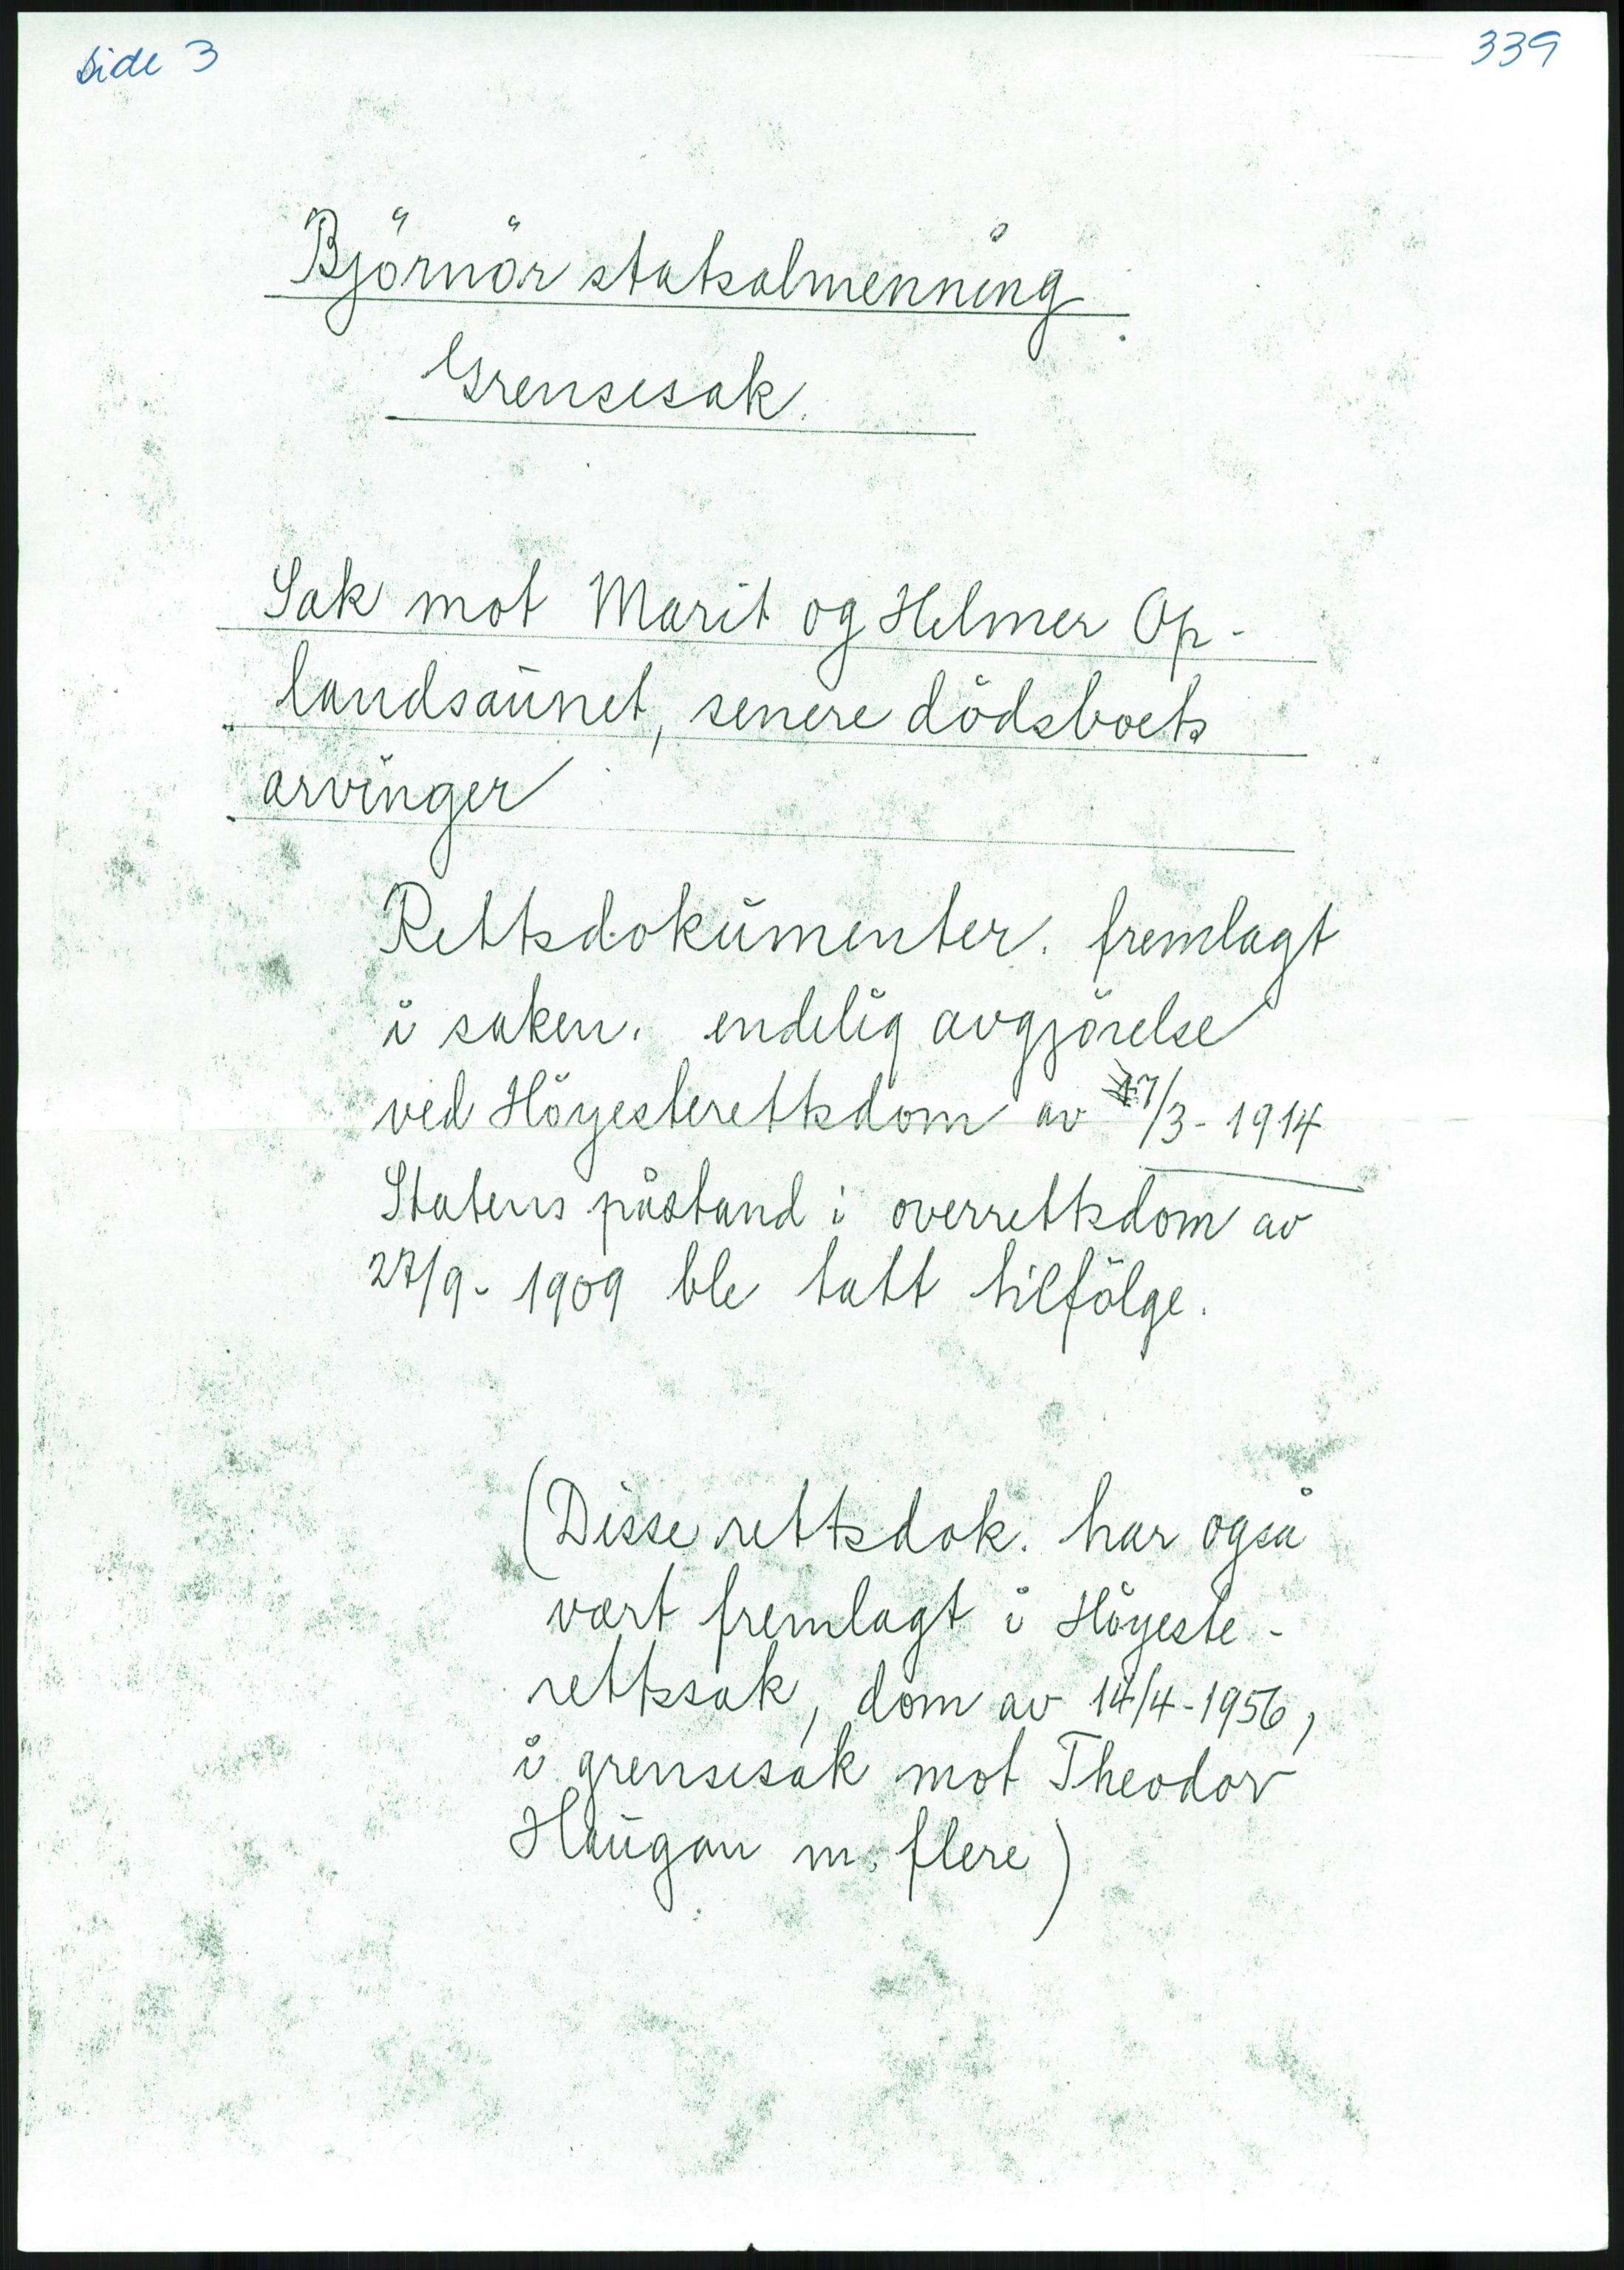 Side 3
339
Björnör statsalmenning
Grensesak.
Sak mot Marit og Helmer Op-
landsaunet, senere dödsboets
arvinger
Rettsdokumenter. fremlagt
i saken. endelig avgjörelse
ved Höyesterettsdom av 7/3-1914
Statens påstand i overrettsdom av
27/9-1909 ble tatt tilfölge.
(Disse rettsdok. har også
vært fremlagt i Höyeste-
rettssak, dom av 14/4-1956,
i grensesak mot Theodor
Haugan m. flere)